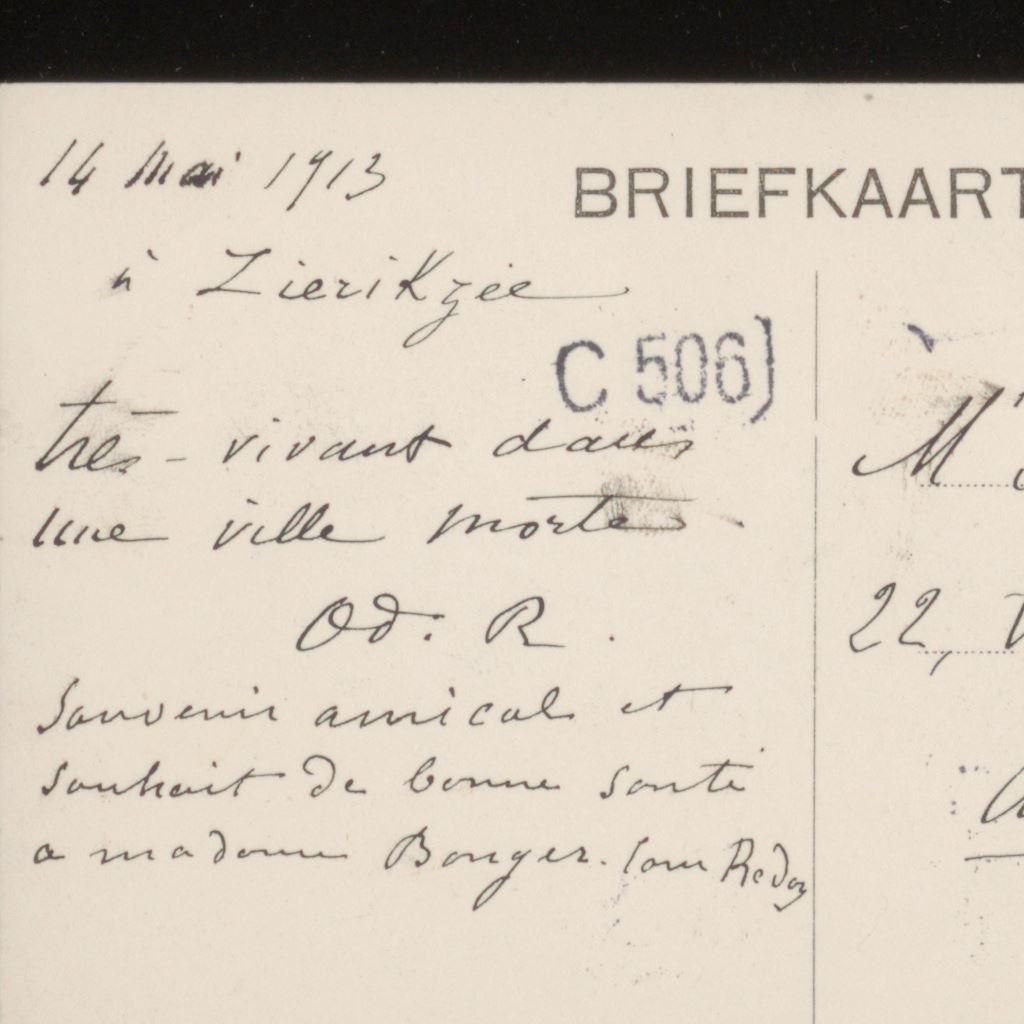 14 Mai 1913
BRIEFKAART
à Zierikzée
C 506]
très-vivant dans
une ville morte.
M
Od: R.
22,
Souvenir amical et
souhait de bonne santé
a madame Bonger. Cam Redon